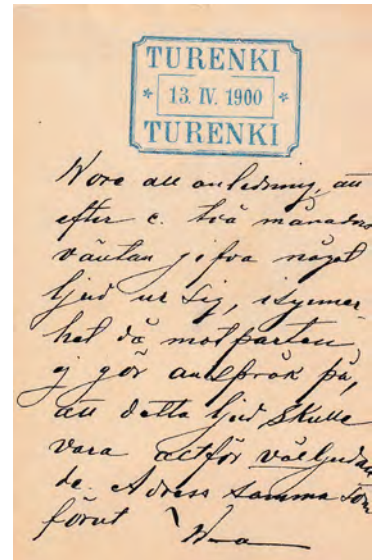 TURENKI
* 13. IV. 1900 *
TURENKI
Wore all anledning, att
efter c. två månaders
väntan gifva något
ljud ur sig, isynner-
het då motparten
ej gör anspråk på,
att detta ljud skulle
vara alltför välljudan
de. Adress samma som
förut